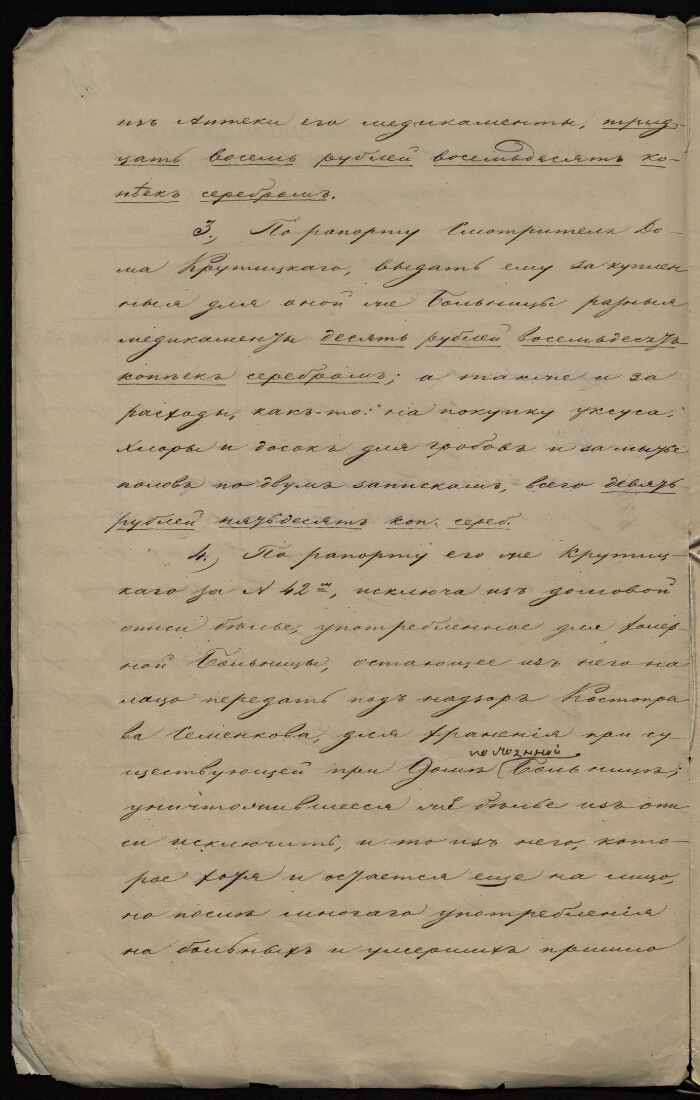 изъ Аптеки его медикаменты, трид-
цать восемь рублей восемьдесятъ ко-
пѣекъ серебромъ.
3., По рапорту Смотрителя До-
ма Крутицкаго, выдать ему за куплен-
ныя для оной же Больницы разныя
медикаменты десять рублей восемьдесятъ
копѣекъ серебромъ; а также и за
расходы, какъ-то: на покупку уксуса,
хлоры и досокъ для гробовъ и за мытье
половъ по двумъ запискамъ, всего девять
рублей пятьдесятъ коп. сереб.
4., По рапорту его же Крутиц-
каго за N 42м, исключа изъ домовой
описи бѣлье, употребленное для холер-
ной Больницы, остающее изъ него на
лицо передать подъ надзоръ Костопра-
ва Семенкова, для храненія при су-
ществующей при Домѣ помянной Больницѣ;
уничтожившееся же бѣлье изъ опи-
си исключить, и то изъ него, кото-
рое хотя и остается еще на лицо,
но послѣ многаго употребленія
на больныхъ и умершихъ пришло